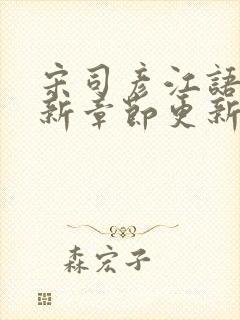 宋司彥江語
新章節更新
森宏子